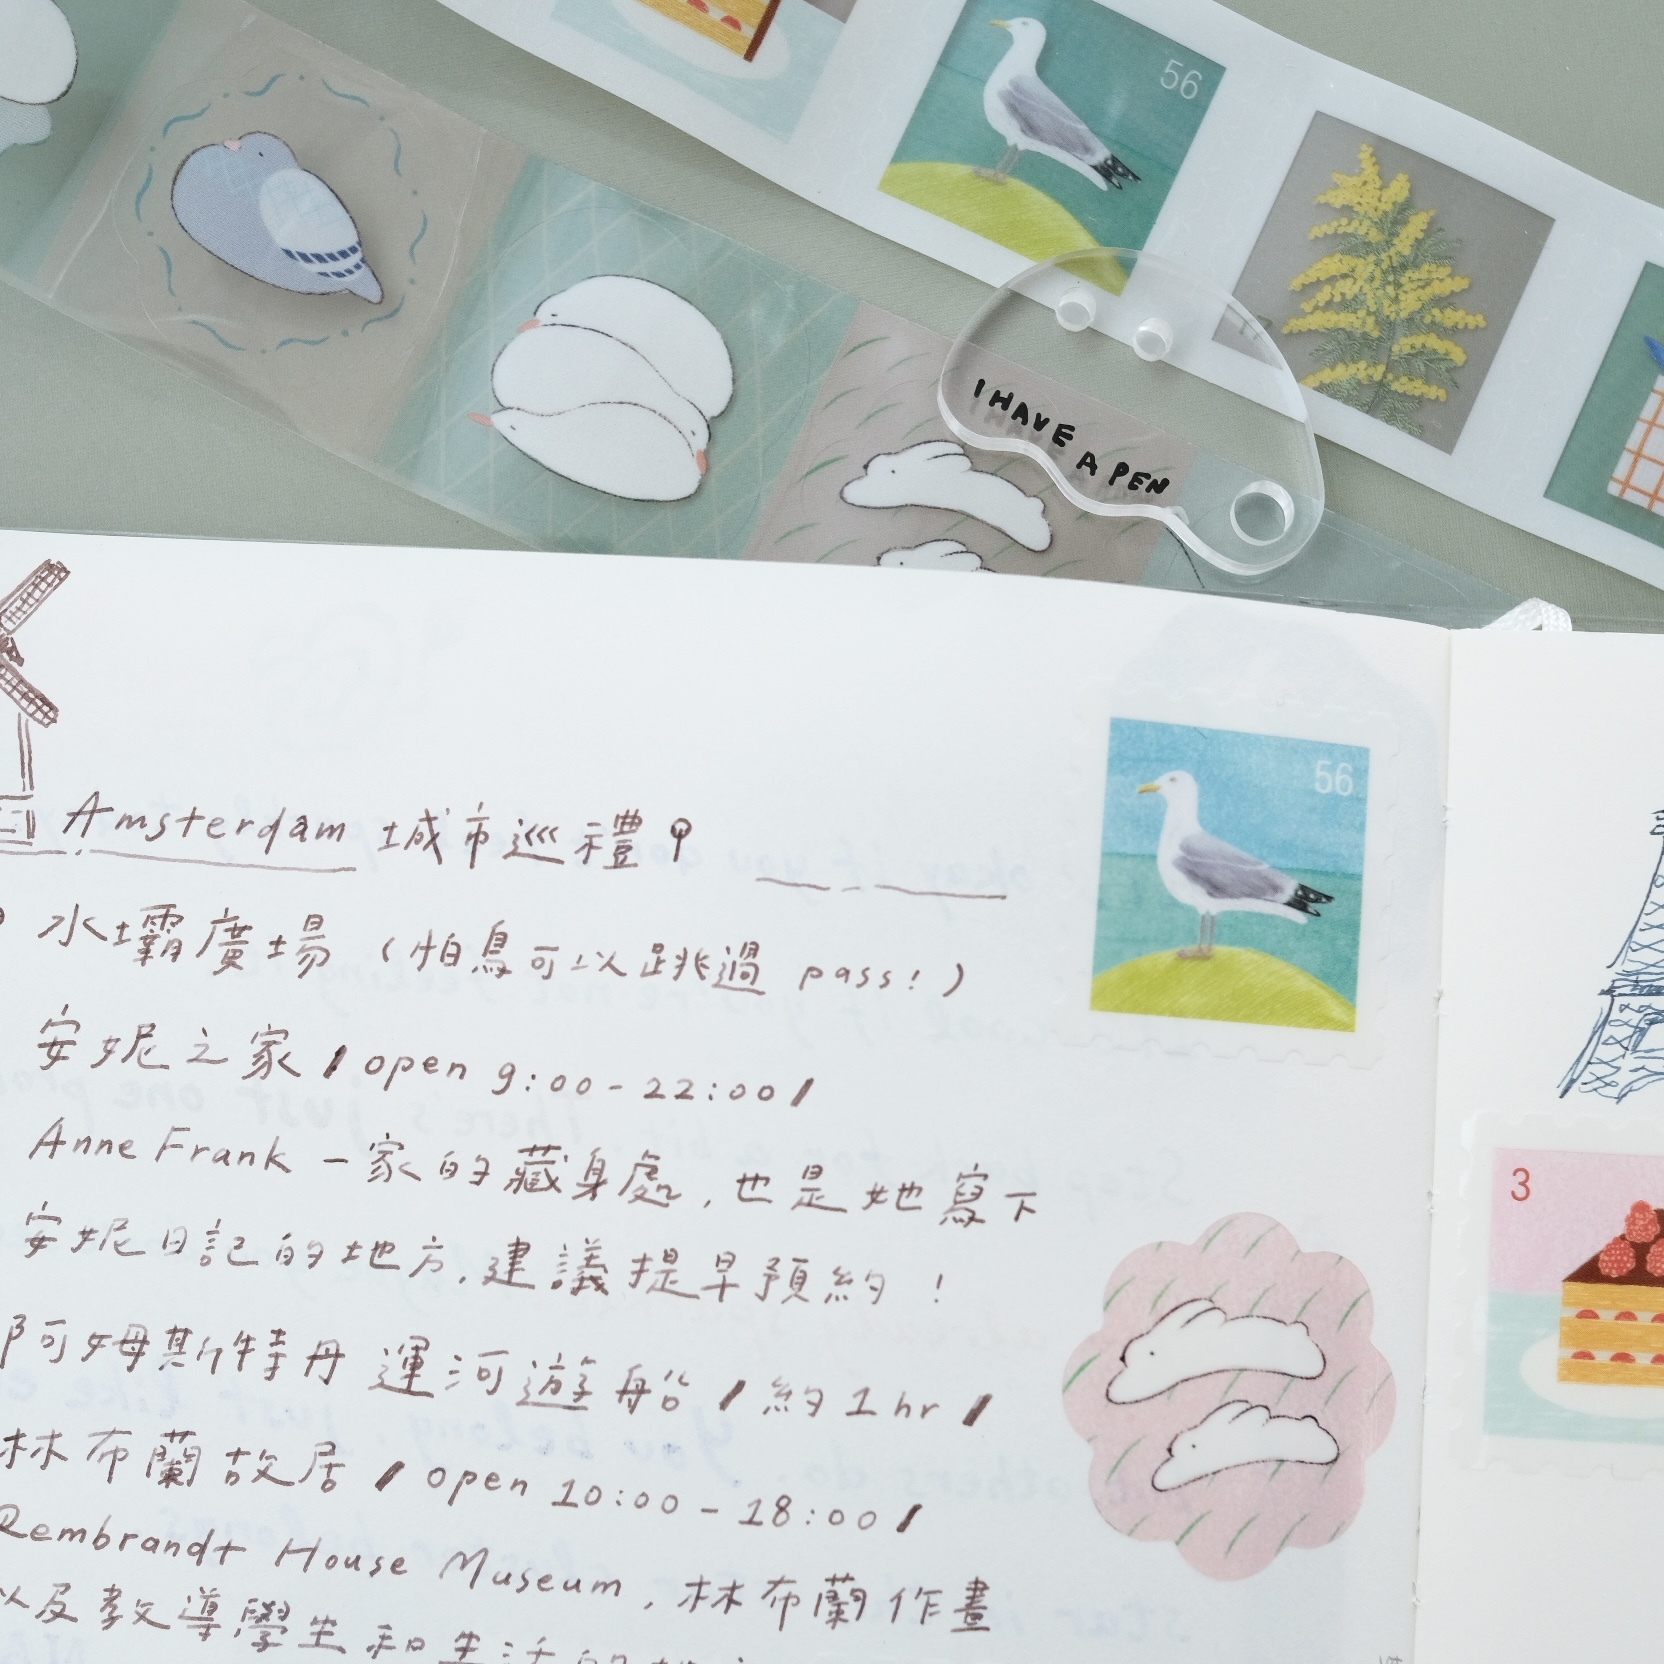 56
I HAVE A PEN
56
Amsterdam 城市巡禮
水壩廣場 (怕鳥可以跳過 pass!)
安妮之家 / open 9:00-22:00 /
Anne Frank 一家的藏身處,也是她寫下
安妮日記的地方,建議提早預約!
阿姆斯特丹 運河遊船 / 約1hr /
林布蘭故居 / open 10:00-18:00 /
Rembrandt House Museum,林布蘭作畫
以及教導學生和生活的
3